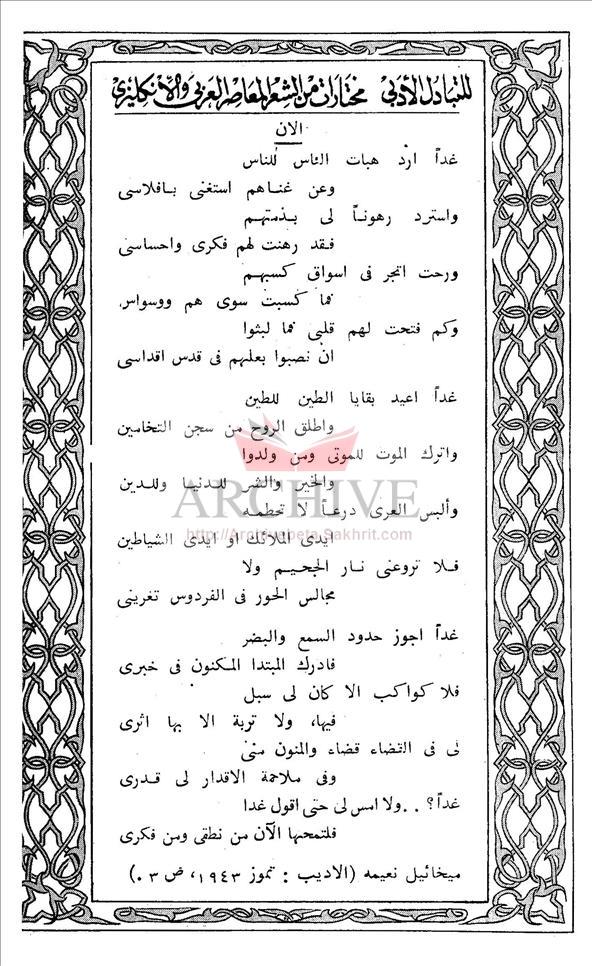 للتبادل الأدبي مختارات من الشعر المعاصر العربي والانكليزي
الان
غداً ارد هبات الناس للناس
وعن غناهم استغنى بافلاسى
واسترد رهوناً لى بذمتهم
فقد رهنت لهم فكرى واحساسى
ورحت اتجر فى اسواق كسبهم
فما كسبت سوى هم ووسواس
وكم فتحت لهم قلبى فما لبثوا
ان نصبوا بعلهم فى قدس اقداسى
غداً اعيد بقايا الطين للطين
واطلق الروح من سجن التخامين
واترك الموت للموتى ومن ولدوا
والخير والشر للدنيا وللدين
وألبس العرى درعاً لا تحطمه
ايدى الملائك او ايدى الشياطين
فلا تروعنى نار الجحيم ولا
مجالس الحور فى الفردوس تغرينى
غداً اجوز حدود السمع والبصر
فادرك المبتدا المكنون فى خبرى
فلا كواكب الا كان لى سبل
فيها، ولا تربة الا بها اثرى
لى فى القضاء قضاء والمنون منى
وفى ملاحمة الاقدار لى قدرى
غداً؟ . . ولا امس لى حتى اقول غدا
فلتمحها الآن من نطقى ومن فكرى
ميخائيل نعيمه (الاديب : تموز ١٩٤٣، ص ٠٣)
ARCHIVE
http://Archivebeta.Sakhrit.com